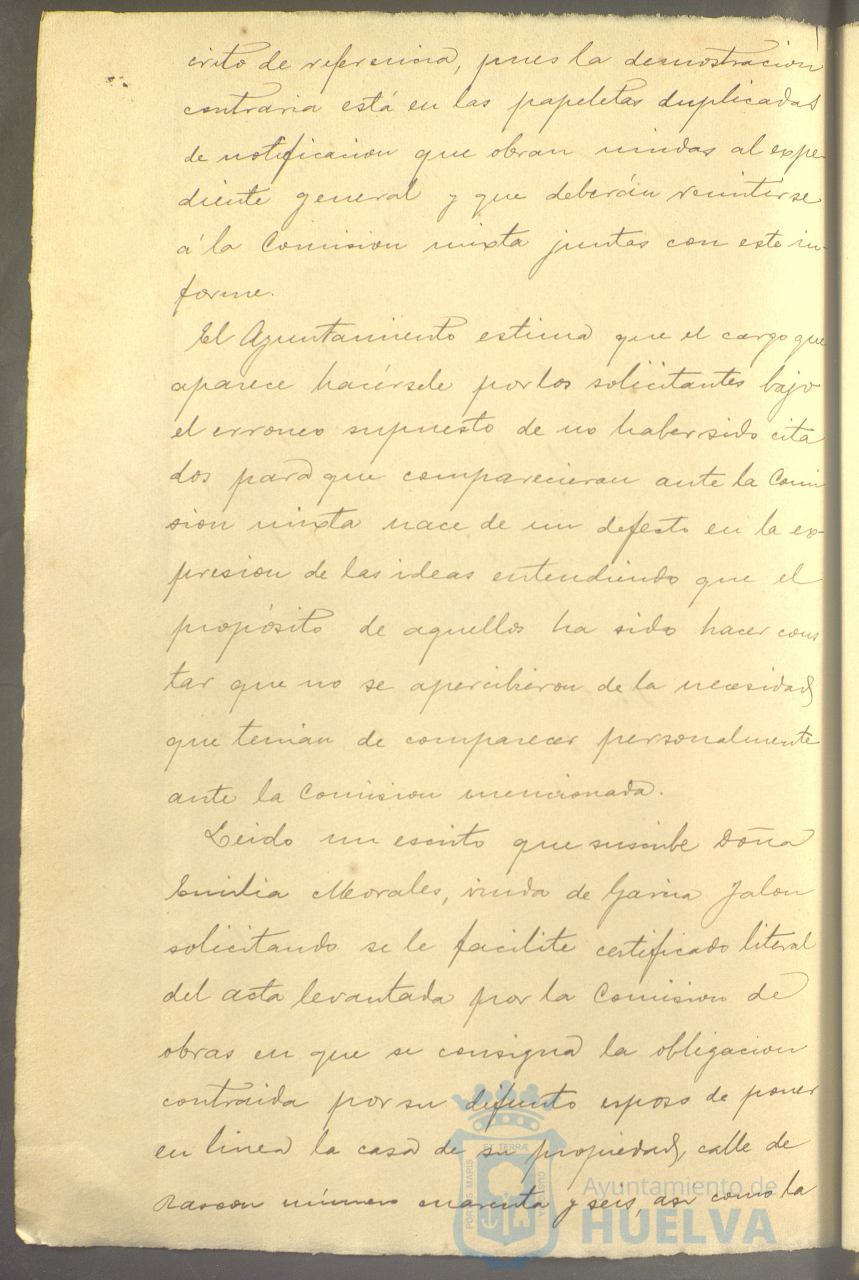 crito de referencia, pues la demostracion
contraria está en las papeletas duplicadas
de notificacion que obran unidas al expe-
diente general y que deberán remitirse
á la Comision mixta juntas con este in-
forme.
El Ayuntamiento estima que el cargo que
aparece hacérsele por los solicitantes bajo
el erroneo supuesto de no haber sido cita
dos para que comparecieran ante la Comi
sion mixta nace de un defecto en la ex-
presion de las ideas entendiendo que el
propósito de aquellos ha sido hacer cons
tar que no se apercibieron de la necesidad
que tenian de comparecer personalmente
ante la Comision mencionada.
Leido un escrito que suscribe Doña
Emilia Morales, viuda de Garcia Jalon
solicitando se le facilite certificado literal
del acta levantada por la Comision de
obras en que se consigna la obligacion
contraida por su difunto esposo de poner
en linea la casa de su propiedad, calle de
Rascon número cuarenta y seis, asi como la
Ayuntamiento de
HUELVA